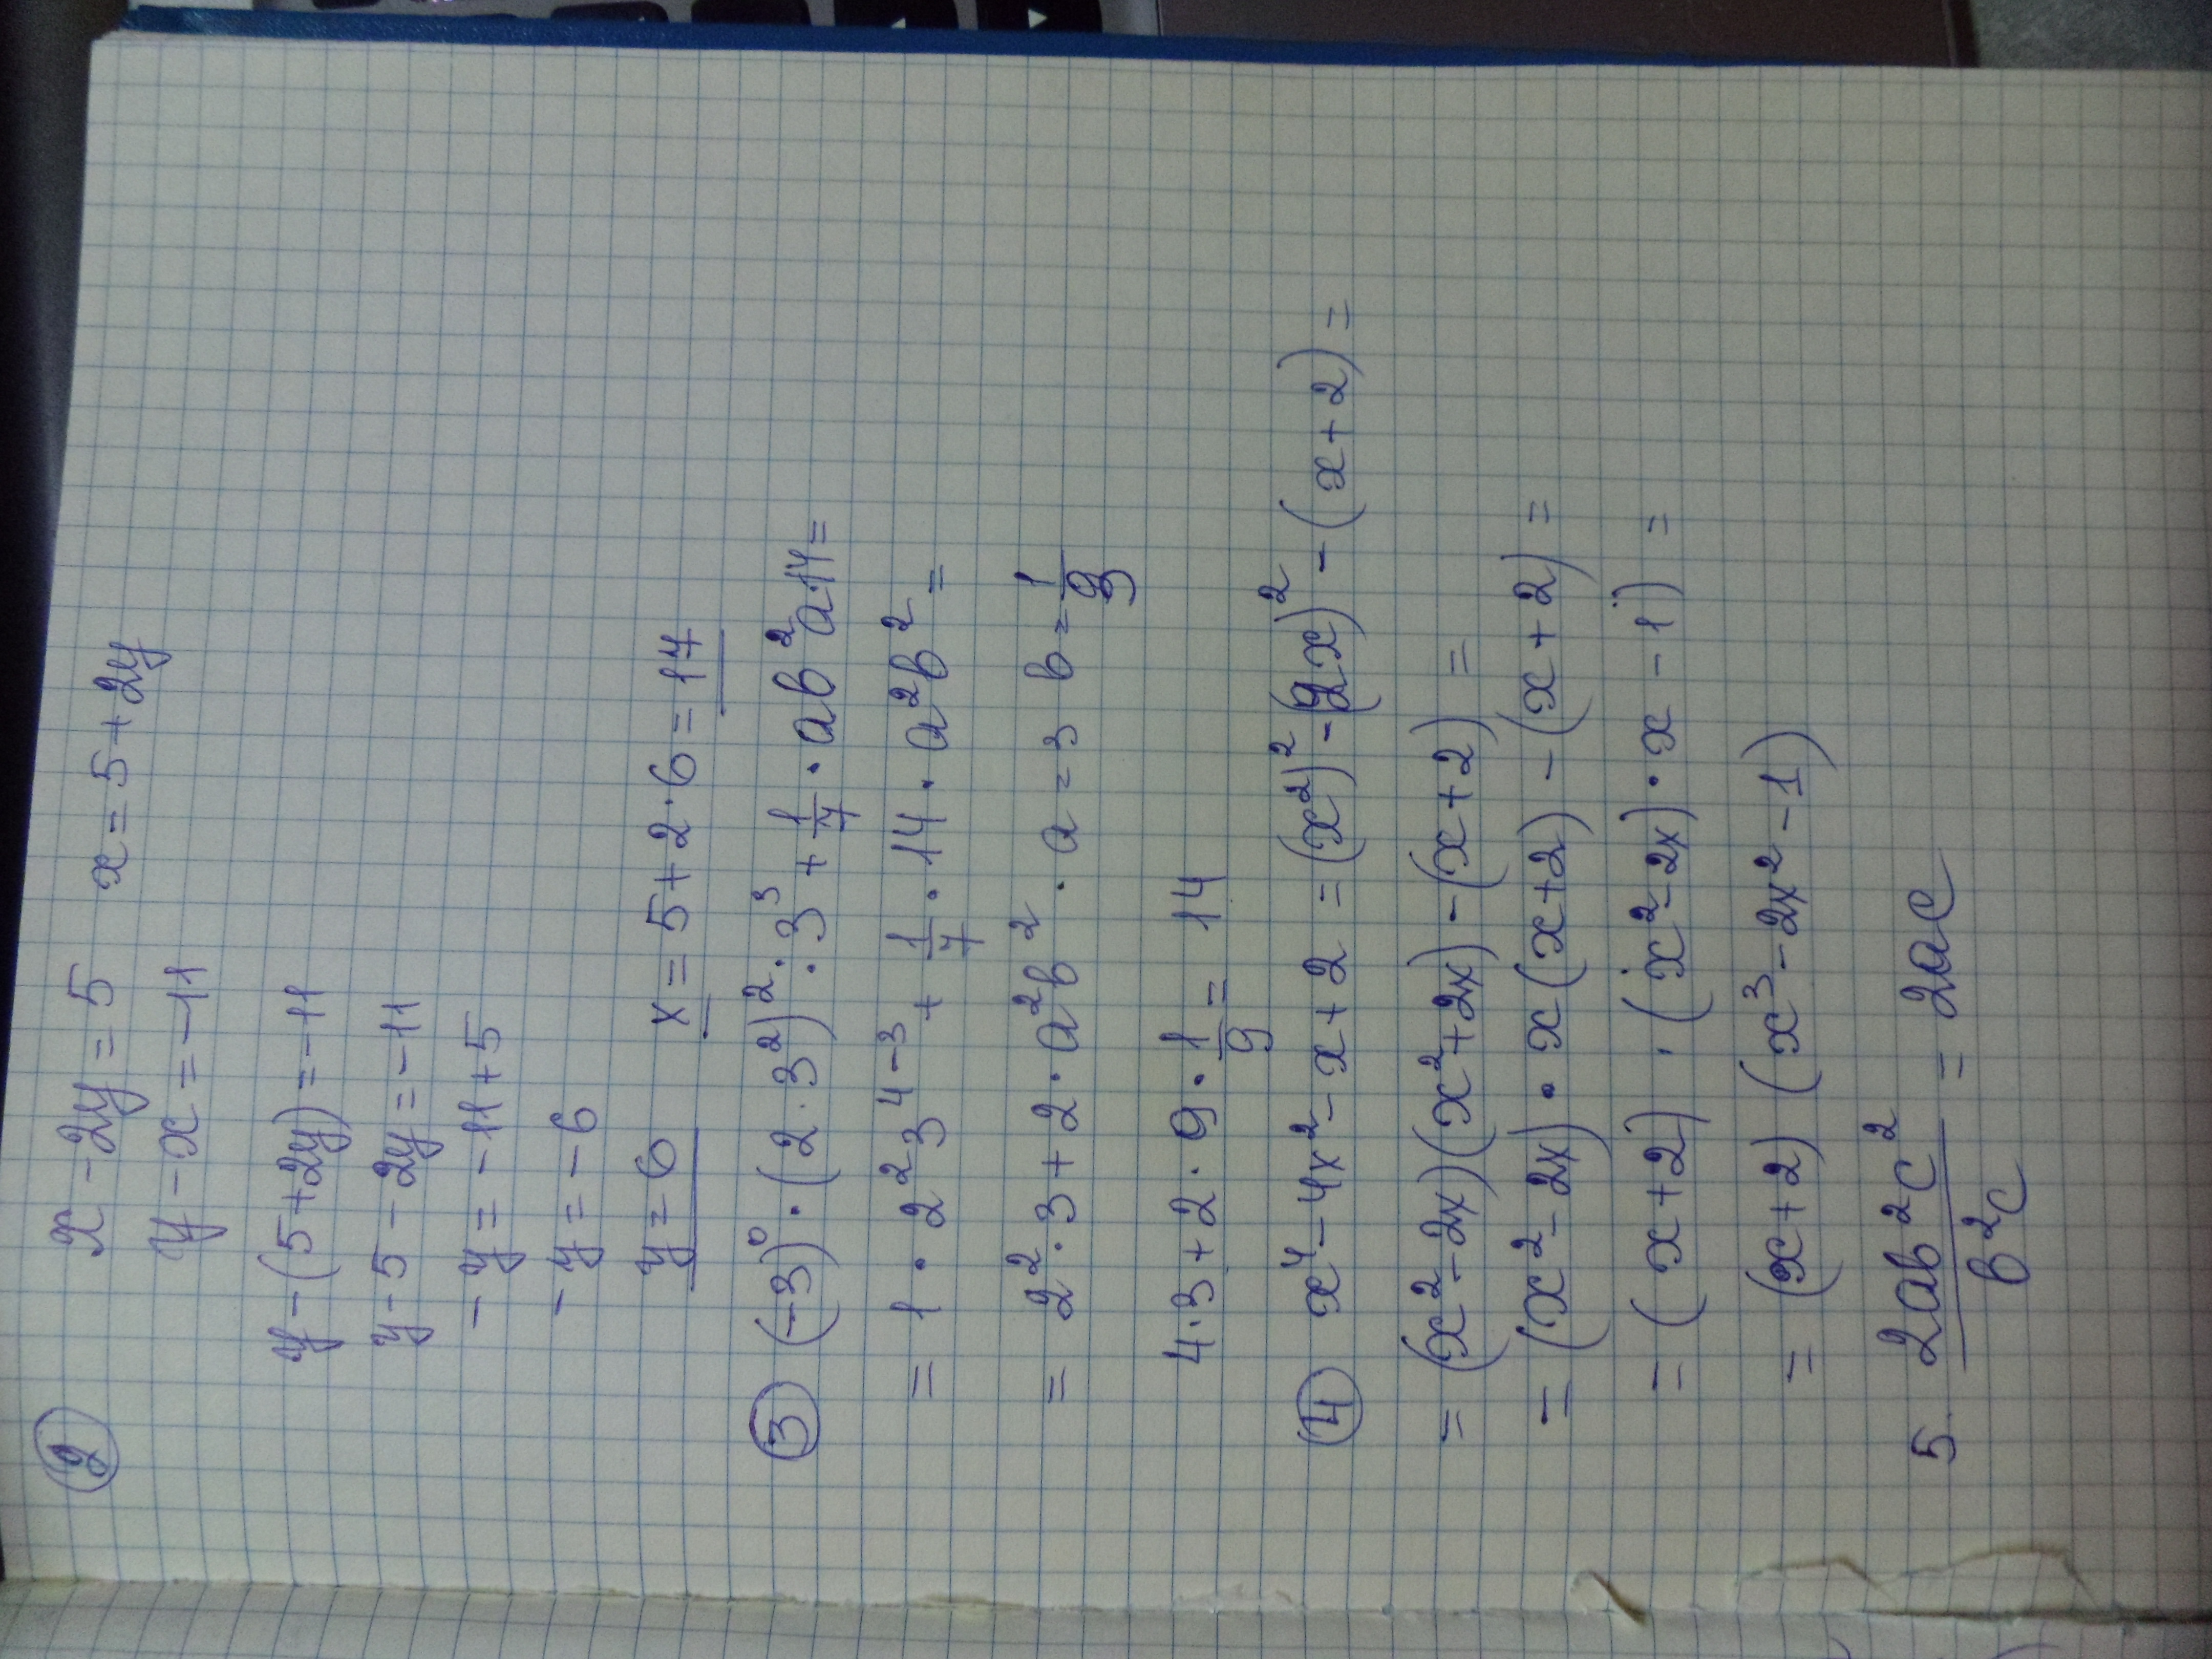 ② x - 2y = 5 x = 5 + 2y
y - x = -11
y - (5 + 2y) = -11
y - 5 - 2y = -11
- y = -11 + 5
- y = -6
y = 6 x = 5 + 2·6 = 17
③ (-3)⁰ · (2 · 3²)² : 3³ + 1/7 · ab² a·14 =
= 1 · 2² 3⁴⁻³ + 1/7 · 14 · a²b² =
= 2² · 3 + 2 · a²b² · a = 3 b = 1/3
4·3 + 2 · 9 · 1/9 = 14
④ x⁴ - 4x² - x + 2 = (x²)² - (2x)² - (x + 2) =
= (x² - 2x)(x² + 2x) - (x + 2) =
= (x² - 2x) · x (x + 2) - (x + 2) =
= (x + 2) · (x² - 2x) · x - 1) =
= (x + 2) (x³ - 2x² - 1)
5. 2ab²c²/b²c = 2ac